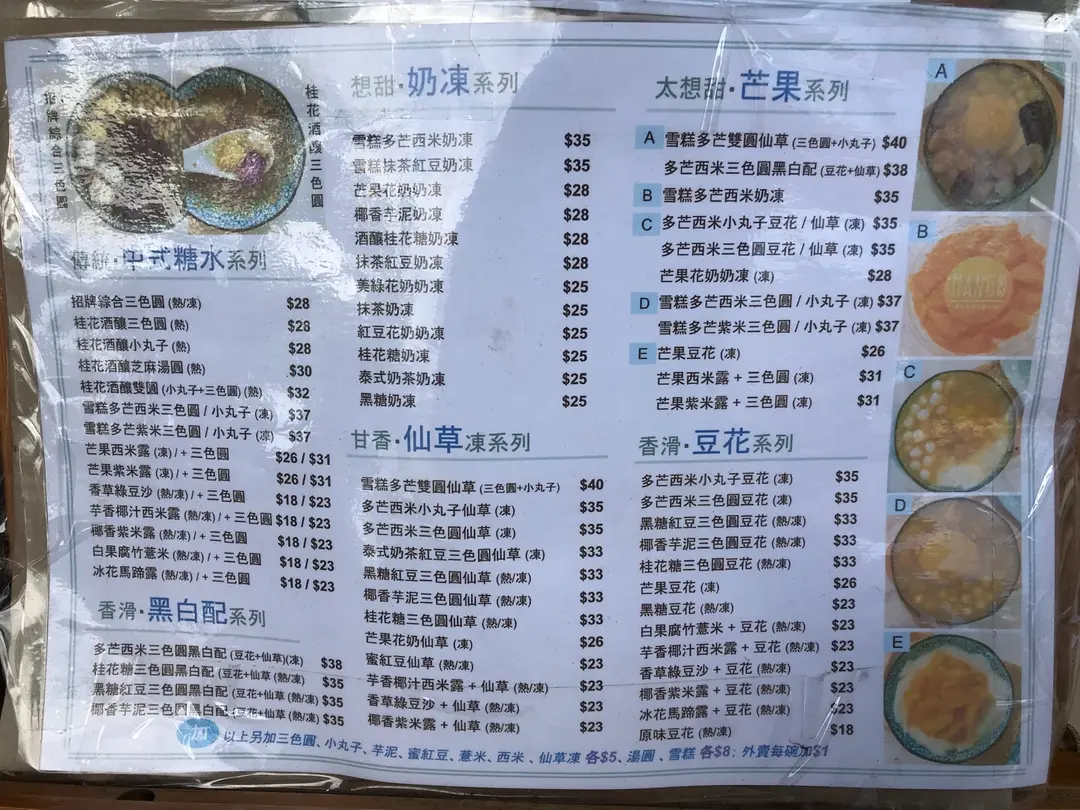 招牌綜合三色圓
桂花酒釀三色圓
傳統·中式糖水系列
招牌綜合三色圓 (熱/凍) $28
桂花酒釀三色圓 (熱) $28
桂花酒釀小丸子 (熱) $28
桂花酒釀芝麻湯圓 (熱) $30
桂花酒釀雙圓 (小丸子+三色圓) (熱) $32
雪糕多芒西米三色圓 / 小丸子 (凍) $37
雪糕多芒紫米三色圓 / 小丸子 (凍) $37
芒果西米露 (凍) / + 三色圓 $26 / $31
芒果紫米露 (凍) / + 三色圓 $26 / $31
香草綠豆沙 (熱/凍) / + 三色圓 $18 / $23
芋香椰汁西米露 (熱/凍) / + 三色圓 $18 / $23
椰香紫米露 (熱/凍) / + 三色圓 $18 / $23
白果腐竹薏米 (熱/凍) / + 三色圓 $18 / $23
冰花馬蹄露 (熱/凍) / + 三色圓 $18 / $23
香滑·黑白配系列
多芒西米三色圓黑白配 (豆花+仙草)(凍) $38
桂花糖三色圓黑白配 (豆花+仙草 (熱/凍) $35
黑糖紅豆三色圓黑白配 (豆花+仙草 (熱/凍) $35
椰香芋泥三色圓黑白配 (豆花+仙草 (熱/凍) $35
想甜·奶凍系列
雪糕多芒西米奶凍 $35
雪糕抹茶紅豆奶凍 $35
芒果花奶奶凍 $28
椰香芋泥奶凍 $28
酒釀桂花糖奶凍 $28
抹茶紅豆奶凍 $28
美綠花奶奶凍 $25
抹茶奶凍 $25
紅豆花奶奶凍 $25
桂花糖奶凍 $25
泰式奶茶奶凍 $25
黑糖奶凍 $25
甘香·仙草凍系列
雪糕多芒雙圓仙草 (三色圓+小丸子) $40
多芒西米小丸子仙草 (凍) $35
多芒西米三色圓仙草 (凍) $35
泰式奶茶紅豆三色圓仙草 (凍) $33
黑糖紅豆三色圓仙草 (熱/凍) $33
椰香芋泥三色圓仙草 (熱/凍) $33
桂花糖三色圓仙草 (熱/凍) $33
芒果花奶仙草 (凍) $26
蜜紅豆仙草 (熱/凍) $23
芋香椰汁西米露 + 仙草 (熱/凍) $23
香草綠豆沙 + 仙草 (熱/凍) $23
椰香紫米露 + 仙草 (熱/凍) $23
太想甜·芒果系列
A 雪糕多芒雙圓仙草 (三色圓+小丸子) $40
多芒西米三色圓黑白配 (豆花+仙草) $38
B 雪糕多芒西米奶凍 $35
C 多芒西米小丸子豆花 / 仙草 (凍) $35
多芒西米三色圓豆花 / 仙草 (凍) $35
芒果花奶奶凍 (凍) $28
D 雪糕多芒西米三色圓 / 小丸子 (凍) $37
雪糕多芒紫米三色圓 / 小丸子 (凍) $37
E 芒果豆花 (凍) $26
芒果西米露 + 三色圓 (凍) $31
芒果紫米露 + 三色圓 (凍) $31
香滑·豆花系列
多芒西米小丸子豆花 (凍) $35
多芒西米三色圓豆花 (凍) $35
黑糖紅豆三色圓豆花 (熱/凍) $33
椰香芋泥三色圓豆花 (熱/凍) $33
桂花糖三色圓豆花 (熱/凍) $33
芒果豆花 (凍) $26
黑糖豆花 (熱/凍) $23
白果腐竹薏米 + 豆花 (熱/凍) $23
芋香椰汁西米露 + 豆花 (熱/凍) $23
香草綠豆沙 + 豆花 (熱/凍) $23
椰香紫米露 + 豆花 (熱/凍) $23
冰花馬蹄露 + 豆花 (熱/凍) $23
原味豆花 (熱/凍) $18
A
B
MANGO
C
D
E
以上另加三色圓、小丸子、芋泥、蜜紅豆、薏米、西米、仙草凍 各$5、湯圓、雪糕 各$8; 外賣每碗加$1